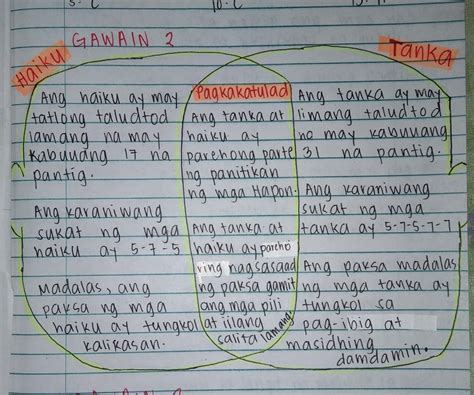 GAWAIN 2
Haiku
Ang haiku ay may
tatlong taludtod
lamang na may
kabuuang 17 na
pantig.
Ang karaniwang
sukat ng mga
haiku ay 5-7-5
Madalas, ang
paksa ng mga
haiku ay tungkol
kalikasan.
Pagkakatulad
Ang tanka at
haiku ay
parehong parte
ng panitikan
ng mga Hapon.
Ang tanka at
haiku ay pareho
ring nagsasaad
ng paksa gamit
ang mga pili
at iilang
salita lamang
Tanka
Ang tanka ay may
limang taludtod
no may kabuuang
31 na pantig.
Ang karaniwang
sukat ng mga
tanka ay 5-7-5-7-7
Ang paksa madalas
ng mga tanka ay
tungkol sa
pag-ibig at
masidhing
damdamin.